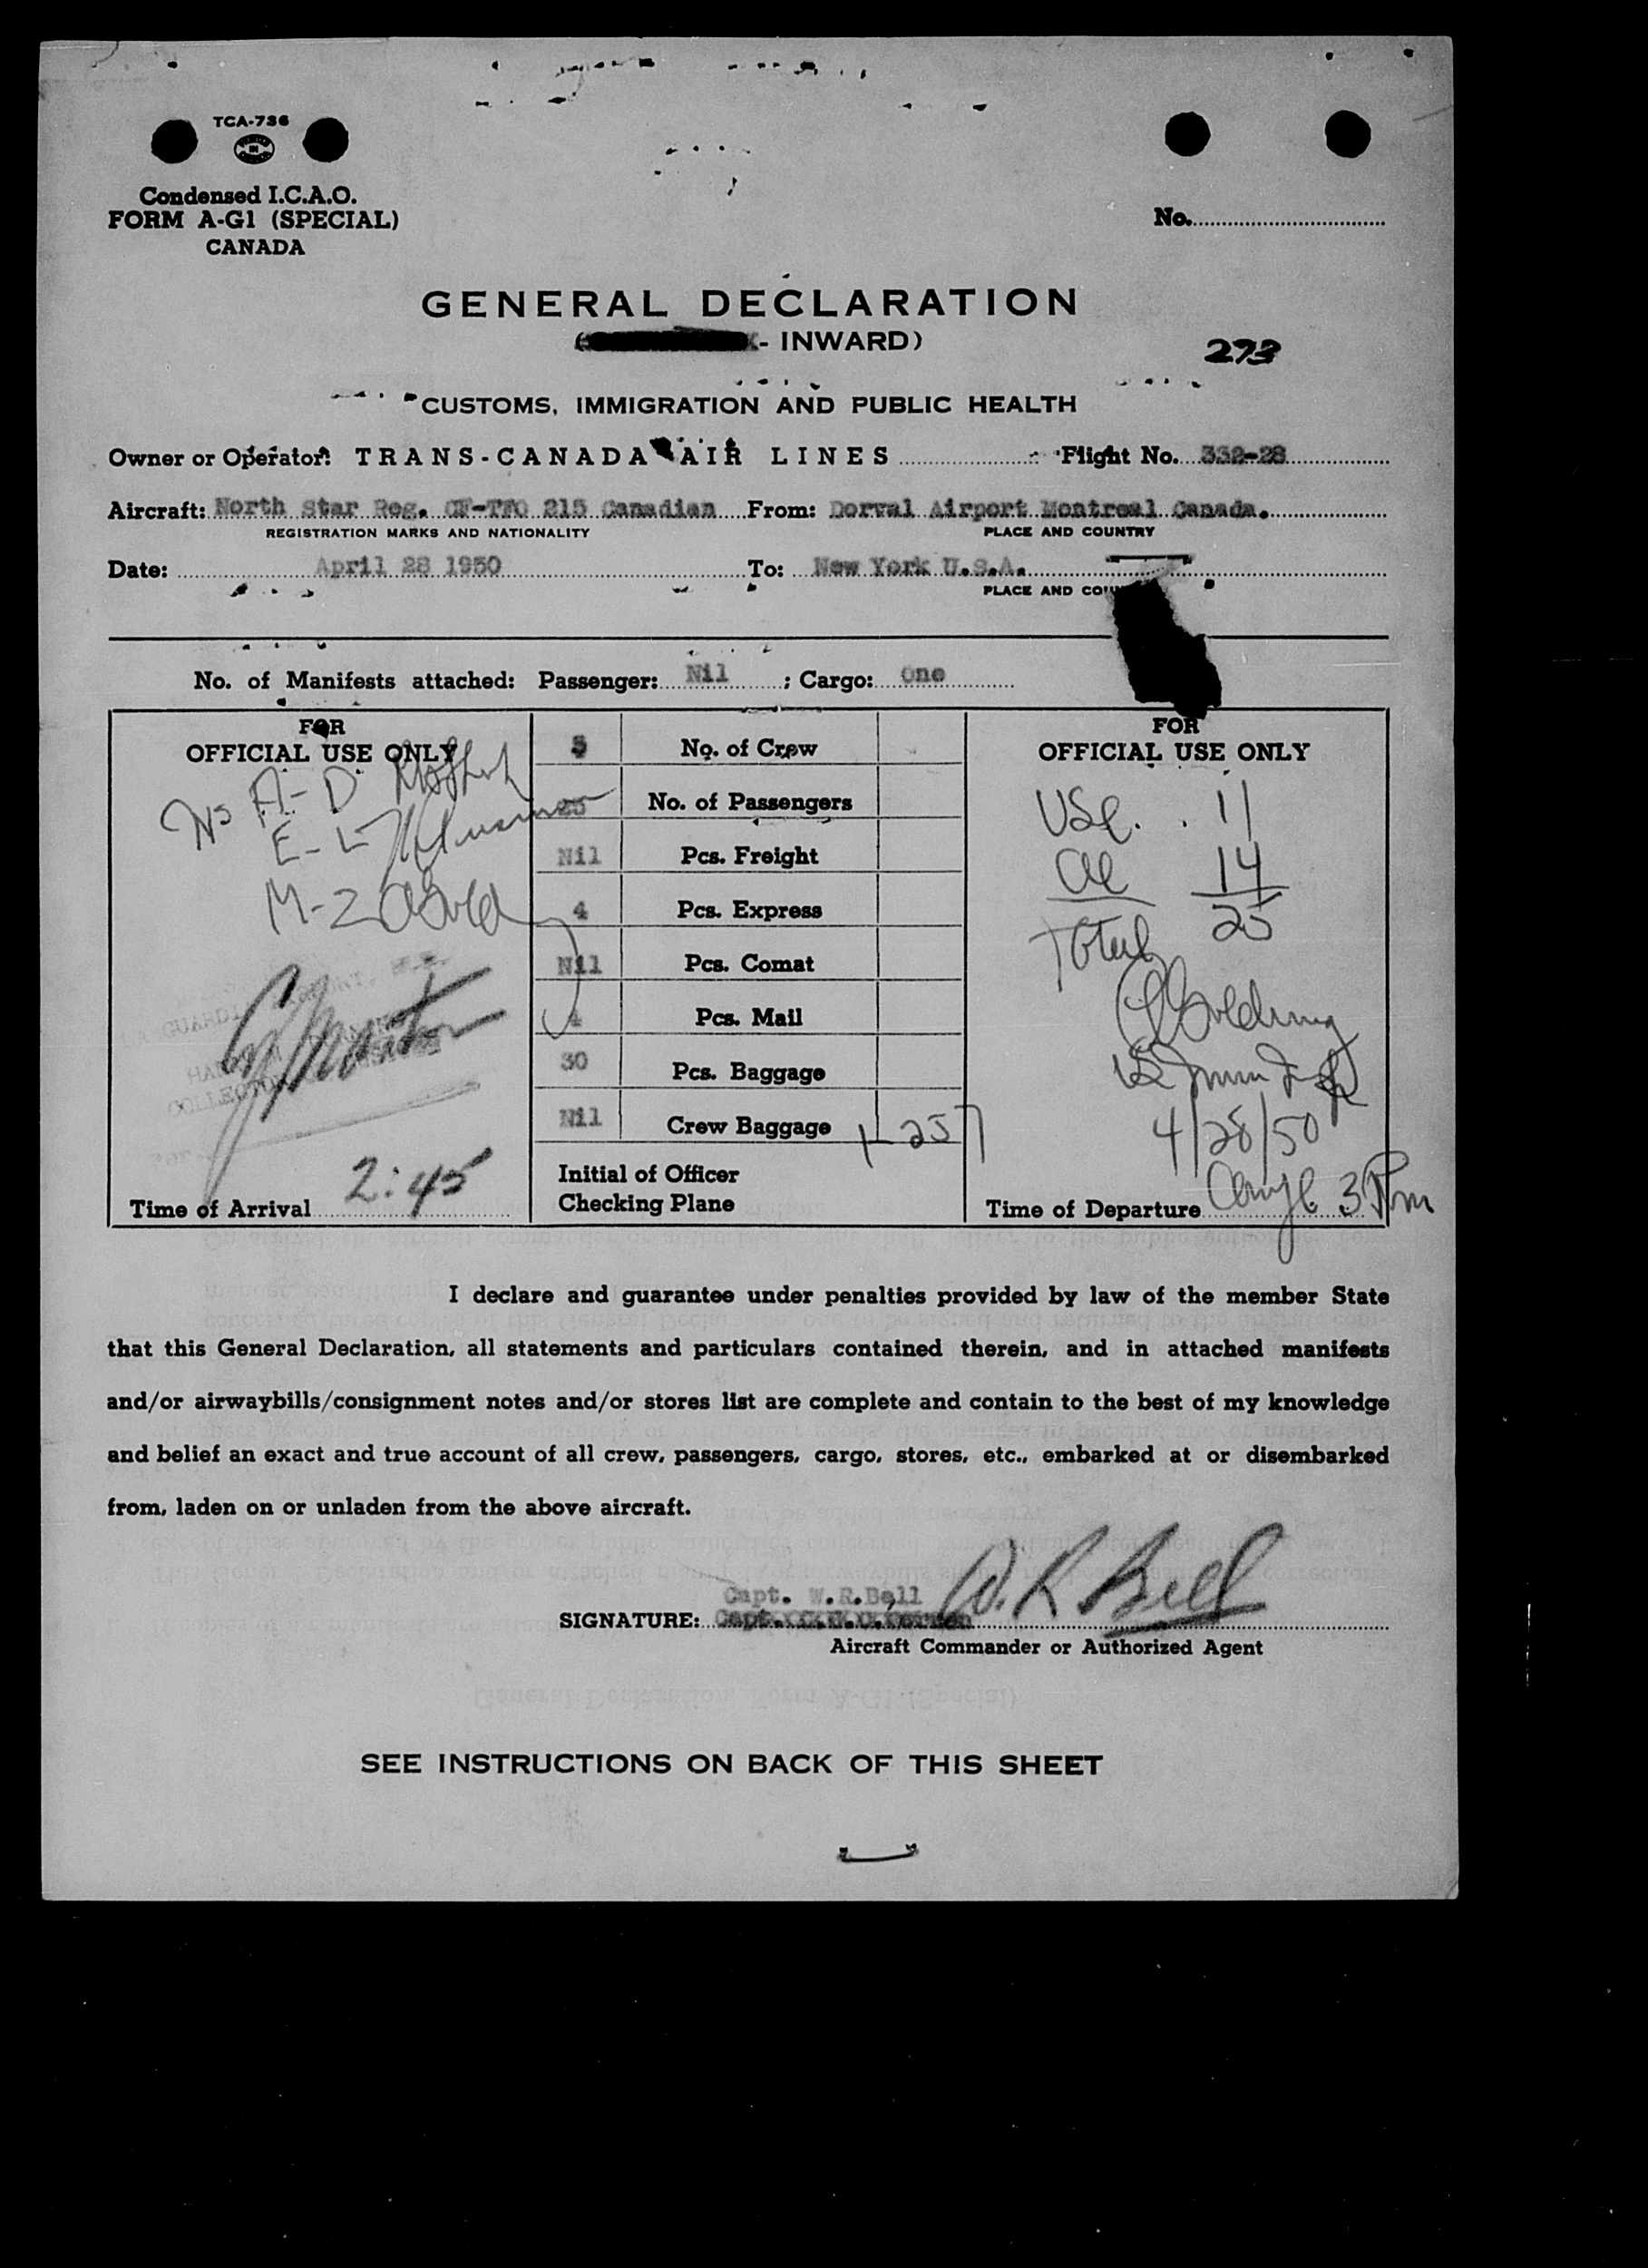 TCA-736
Condensed I.C.A.O.
FORM A-G1 (SPECIAL)
CANADA
No.
GENERAL DECLARATION
- INWARD)
273
CUSTOMS, IMMIGRATION AND PUBLIC HEALTH
Owner or Operator: TRANS-CANADA AIR LINES Flight No. 332-28
Aircraft: North Star Reg. CF-TFO 215 Canadian From: Dorval Airport Montreal Canada.
REGISTRATION MARKS AND NATIONALITY PLACE AND COUNTRY
Date: April 28 1950 To: New York U.S.A.
PLACE AND
No. of Manifests attached: Passenger: Nil ; Cargo: One
FOR
OFFICIAL USE ONLY
A- D
E-
M-2
Time of Arrival 2:45
5 No. of Crew
25 No. of Passengers
Nil Pcs. Freight
4 Pcs. Express
Nil Pcs. Comat
Pcs. Mail
30 Pcs. Baggage
Nil Crew Baggage
Initial of Officer
Checking Plane
FOR
OFFICIAL USE ONLY
USC. 11
14
Total 25
4/28/50
Time of Departure 3 Pm
I declare and guarantee under penalties provided by law of the member State
that this General Declaration, all statements and particulars contained therein, and in attached manifests
and/or airwaybills/consignment notes and/or stores list are complete and contain to the best of my knowledge
and belief an exact and true account of all crew, passengers, cargo, stores, etc., embarked at or disembarked
from, laden on or unladen from the above aircraft.
Capt. W.R.Bell W.R Bell
SIGNATURE: Capt.
Aircraft Commander or Authorized Agent
SEE INSTRUCTIONS ON BACK OF THIS SHEET